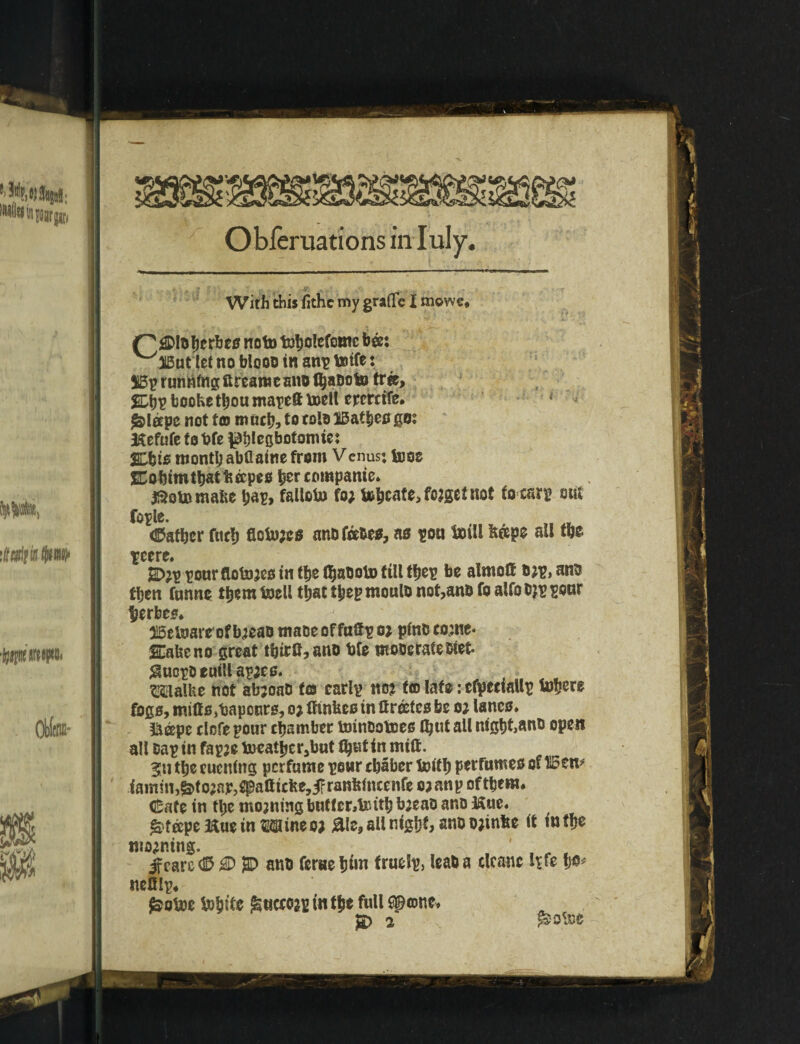 Obseruations in Iuly.
With this sithe my grasse I mowe.
COld herbes now wholesome bée:
But let no blood in any wise:
By running streame and shadow trée,
Thy booke thou mayest well exercise.
Sléepe not too much, to cold Bathes go:
Refuse to vse Phlegbotomie:
This month abstaine from Venus; woe
To him that kéepes her companie.
Now make hay, fallow for wheate, forget not to cary out
soyle.
Gather such flowres and séedes, as you will kéepe all the
yeere.
Dry your flowres in the shadow till they be almost dry, and
then sunne them well that they mould not, and so also dry your
herbes.
Beware of bread made of fusty or pind corne.
Take no great thirst, and vse moderate diet.
Auoyd euill ayres.
Walke not abroad too early nor too late: especially where
fogs, mists, vapours, or stinkes in stréetes be or lanes.
Kéepe close your chamber windowes shut all night, and open
all day in fayre weather, but shut in mist.
In the euening perfume your chãber with perfumes of Ben-
iamin, Storax, Masticke, Frankincense or any of them.
Eate in the morning butter, with bread and Rue.
Stéepe Rue in Wine or Ale, all night, and drinke it in the
morning.
Feare G O D and serue him truely, lead a cleane lyfe ho-
nestly.
Sowe white Succory in the full Moone.
D 2
Sowe
'Iuly, or August:
in your gar,
early in the
are open,
Obseru-